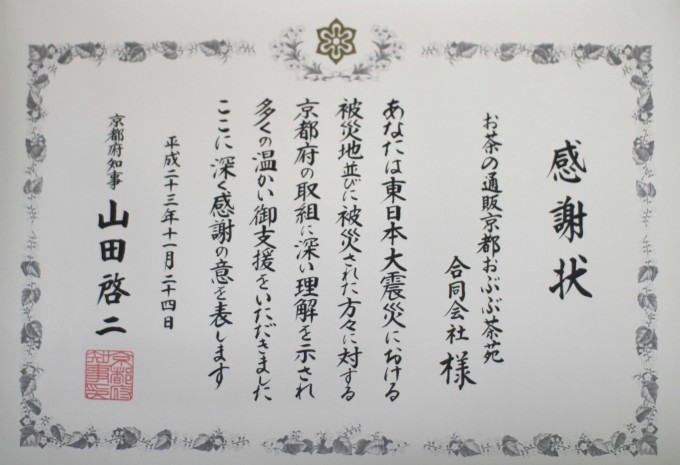 感謝状
お茶の通販京都おぶぶ茶苑
合同会社 様
あなたは東日本大震災における
被災地並びに被災された方々に対する
京都府の取組に深い理解を示され
多くの温かい御支援をいただきました
ここに深く感謝の意を表します
平成二十三年十一月二十四日
京都府知事 山田啓二
京都府知事印